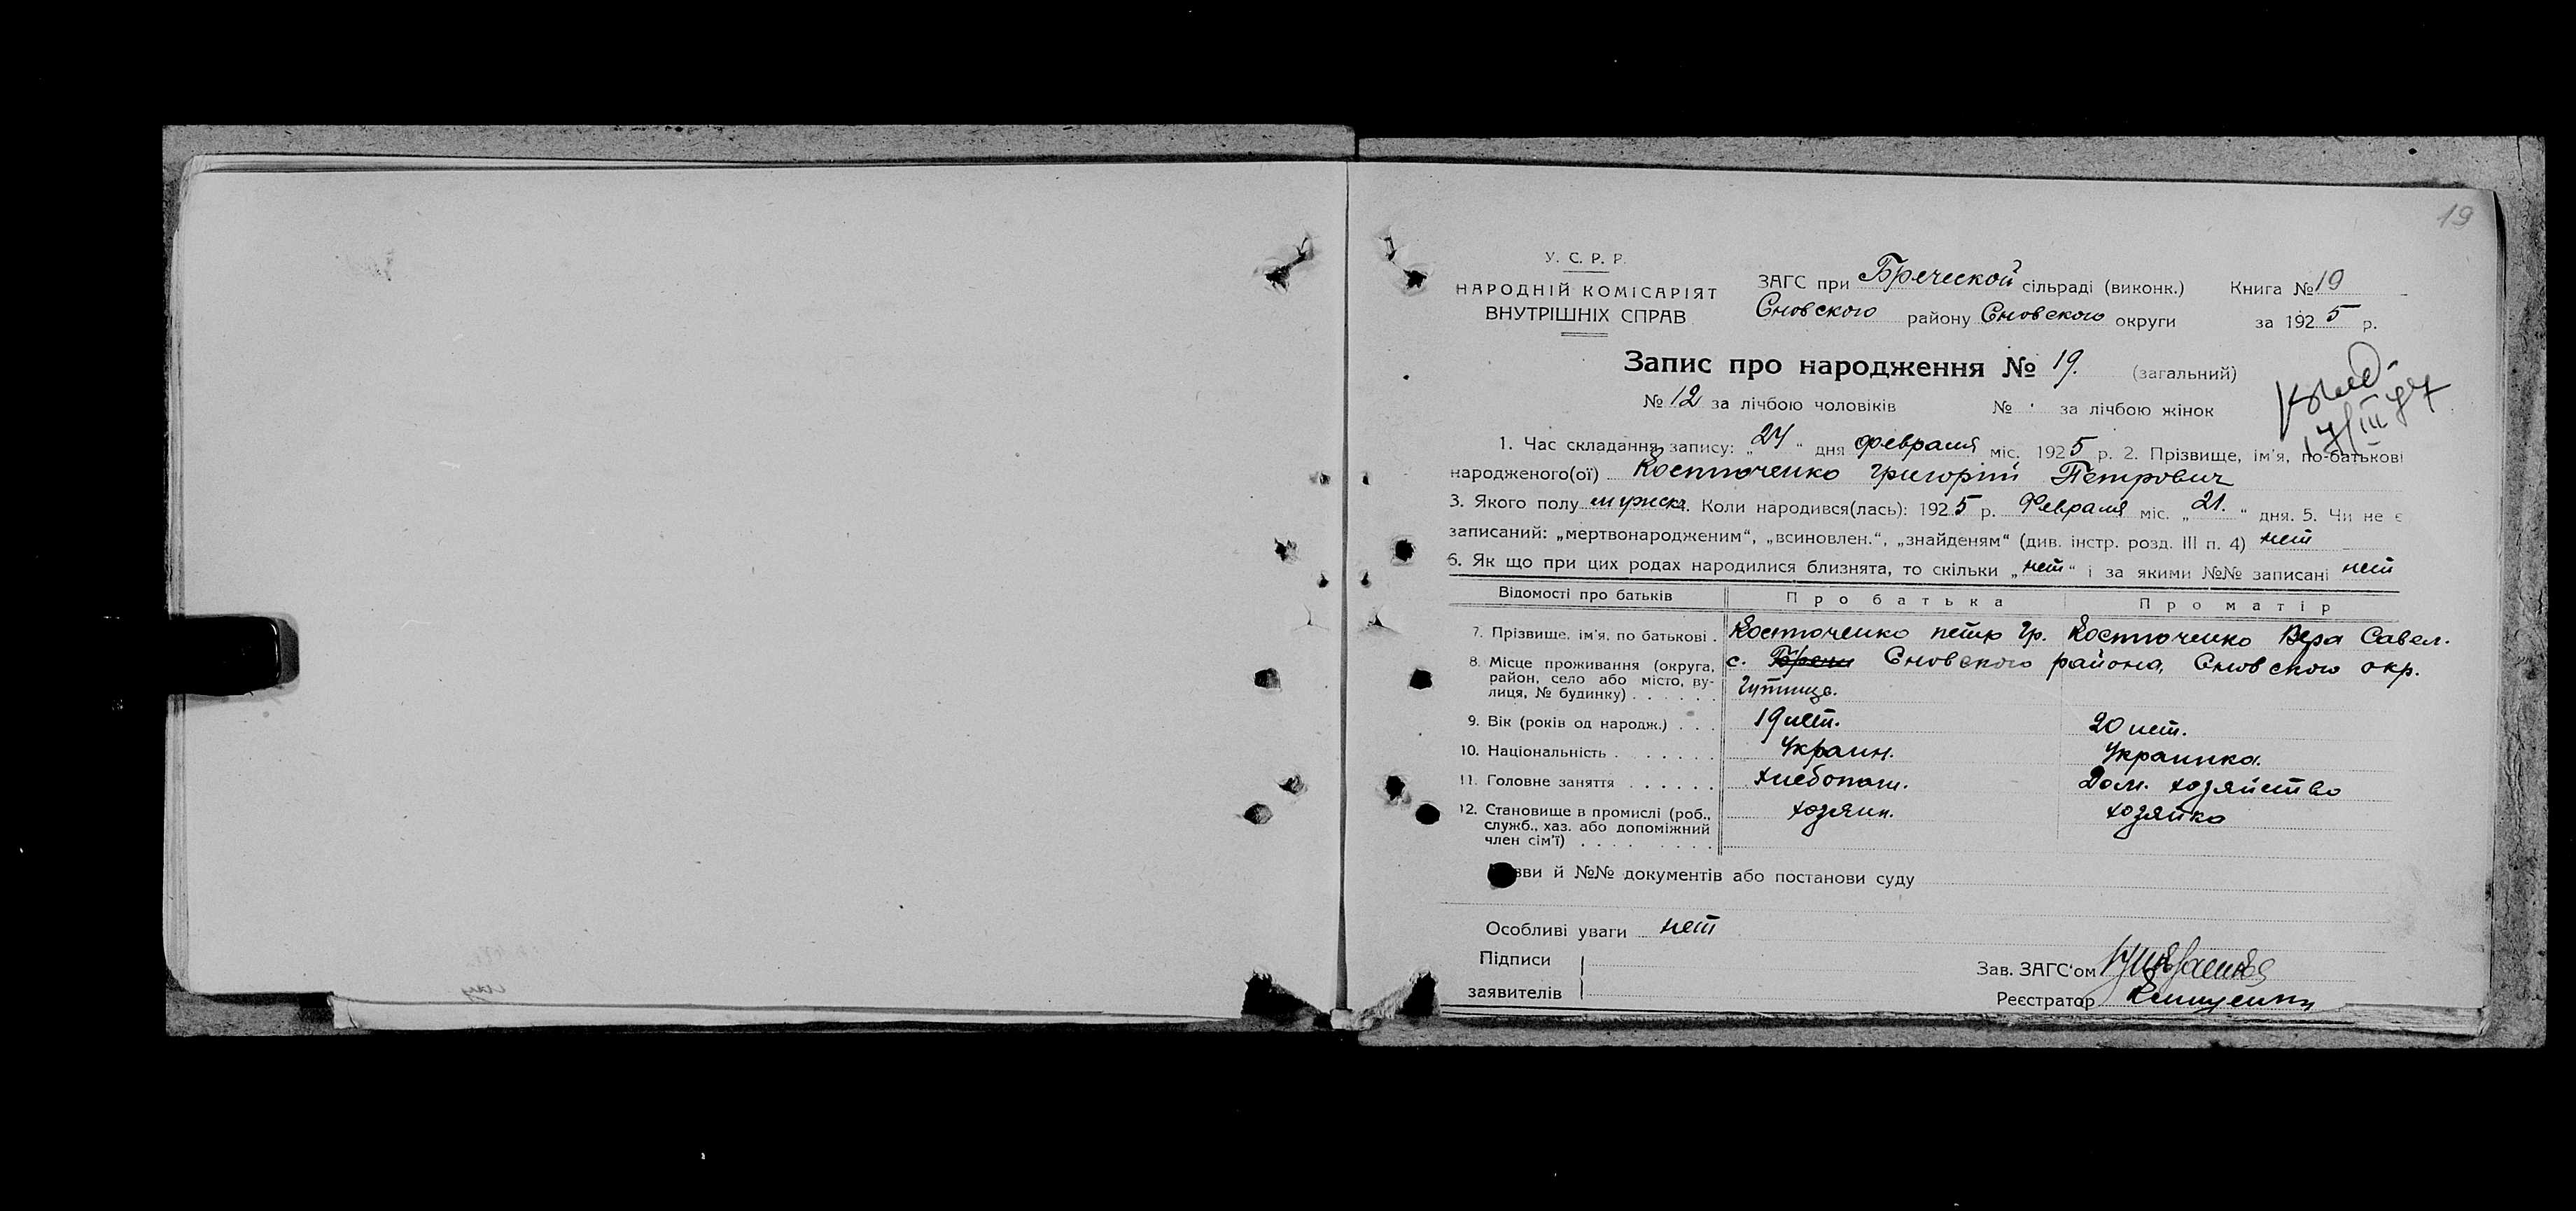 19
У. С. Р. Р.
НАРОДНІЙ КОМІСАРІЯТ
ВНУТРІШНІХ СПРАВ
ЗАГС при Бреческой сільраді (виконк.) Книга № 19
Сновского району Сновского округи за 1925 р.
Запис про народження № 19. (загальний)
№ 12 за лічбою чоловіків № за лічбою жінок
17/III
1. Час складання запису: „24“ дня февраля міс. 1925 р. 2. Прізвище, ім'я, по-батькові
народженого(ої) Костюченко Григорій Петрович
3. Якого полу мужск. 4. Коли народився(лась): 1925 р. Февраля міс. „21.“ дня. 5. Чи не є
записаний: „мертвонародженим“, „всиновлен.“, „знайденям“ (див. інстр. розд. III п. 4) нет
6. Як що при цих родах народилися близнята, то скільки „нет“ і за якими №№ записані нет
Відомості про батьків Про батька Про матір
7. Прізвище, ім'я, по батькові . Костюченко петр Гр. Костюченко Вера Савел.
8. Місце проживання (округа, район, село або місто, вулиця, № будинку) . . . . . . с. Бречи Сновского района, Сновского окр.
Гутище.
9. Вік (років од народж.) . . . 19 лет. 20 лет.
10. Національність . . . . . . . Украин. Украинка.
11. Головне заняття . . . . . . Хлебопаш. Дом. хозяйство
12. Становище в промислі (роб., служб., хаз. або допоміжний член сім'ї) . . . . . . . . хозяин. хозяйка
зви й №№ документів або постанови суду
Особливі уваги нет
Підписи
заявителів
Зав. ЗАГС'ом
Реєстратор